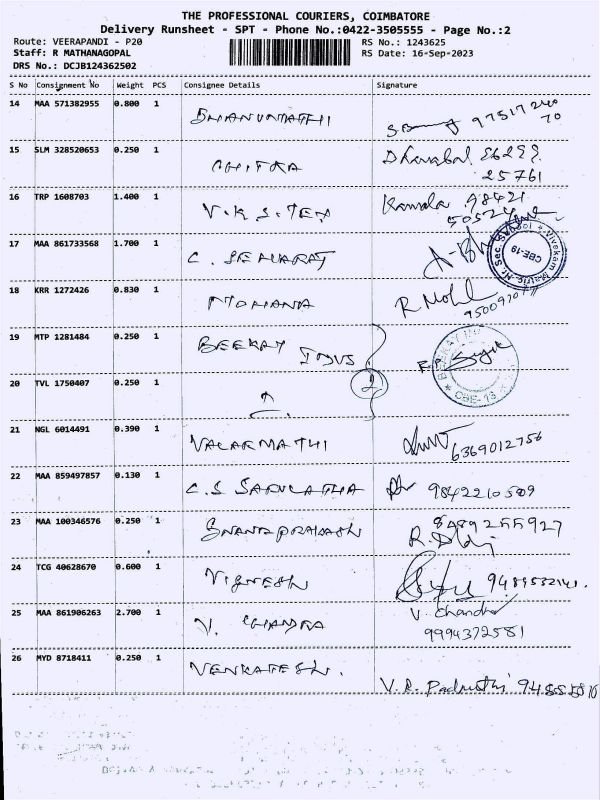 THE PROFESSIONAL COURIERS, COIMBATORE
Delivery Runsheet - SPT - Phone No.:0422-3505555 - Page No.:2
Route: VEERAPANDI - P20 RS No.: 1243625
Staff: R MATHANAGOPAL RS Date: 16-Sep-2023
DRS No.: DCJB124362502
S No Consignment No Weight PCS Consignee Details Signature
14 MAA 571382955 0.800 1 BHANUMATHI
15 SLM 328520653 0.250 1 CHITRA
25761
16 TRP 1608703 1.400 1 V.K.S. TEX Kamala 98421
50524
17 MAA 861733568 1.700 1 C. SELVARAJ
CBE-19
18 KRR 1272426 0.830 1 MOHANA R Mohl
19 MTP 1281484 0.250 1 BEEKAY INDUS
20 TVL 1750407 0.250 1 2
CBE-13
21 NGL 6014491 0.390 1 VALARMATHI 6369012756
22 MAA 859497857 0.130 1 C.S SARULATHA 9842210509
23 MAA 100346576 0.250 1 8489255927
24 TCG 40628670 0.600 1 VIGNESH
25 MAA 861906263 2.700 1 V. CHANDRA V. Chandra
9994372581
26 MYD 8718411 0.250 1 VENKATESH.